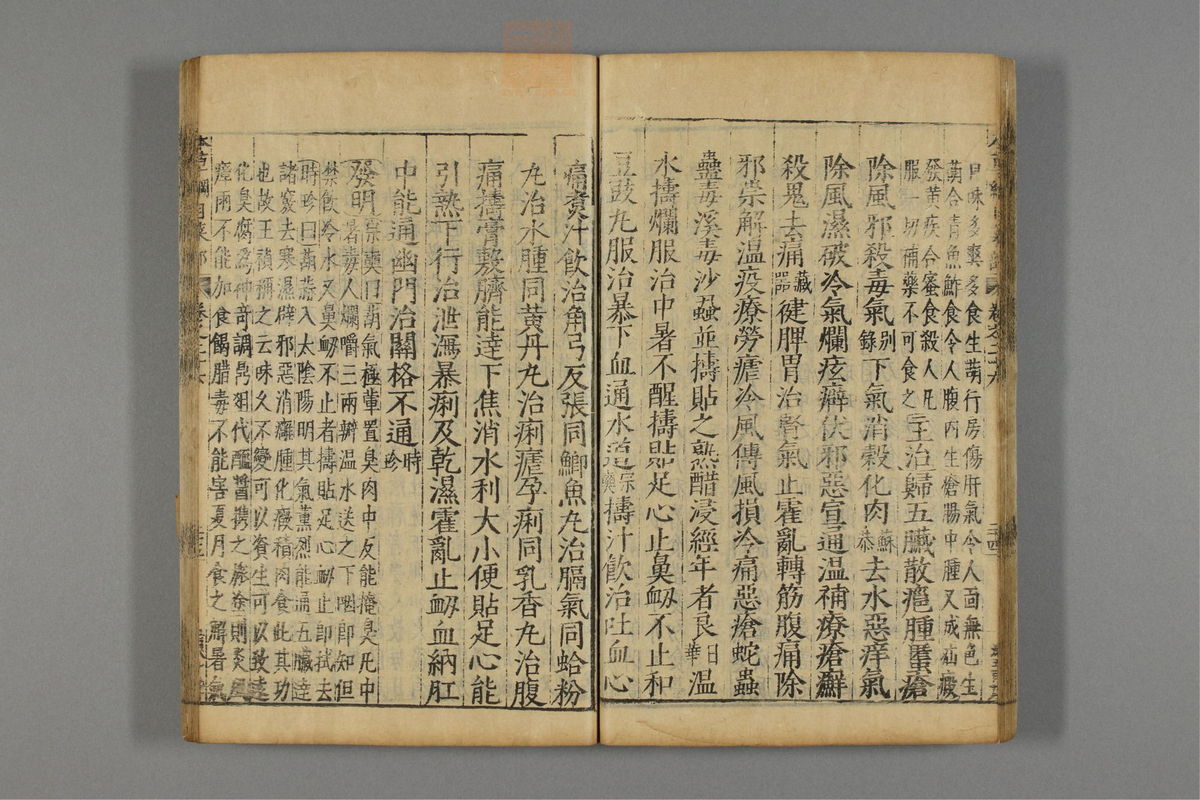 目味多䬪多食生葫行房傷肝氣令人面無色生
葫合青魚鮓食令人腹內生瘡腸中腫又成疝瘕
發黃疾合蜜食殺人凡
服一切補藥不可食之主治歸五臟散癰腫䘌瘡
除風邪殺毒氣別錄下氣消穀化肉蘇恭去水惡瘴氣
除風濕破冷氣爛痃癖伏邪惡宣通溫補療瘡癬
殺鬼去痛藏器健脾胃治腎氣止霍亂轉筋腹痛除
邪祟解溫疫療勞瘧冷風傳風損冷痛惡瘡蛇蟲
蠱毒溪毒沙蝨並擣貼之熟醋浸經年者良日華溫
水擣爛服治中暑不醒擣貼足心止鼻衄不止和
豆豉丸服治暴下血通水道宗奭擣汁飲治吐血心
痛煑汁飲治角弓反張同鯽魚丸治膈氣同蛤粉
丸治水腫同黃丹丸治痢瘧孕痢同乳香丸治腹
痛擣膏敷臍能達下焦消水利大小便貼足心能
引熱下行治泄瀉暴痢及乾濕霍亂止衄血納肛
中能通幽門治關格不通時珍
發明宗奭曰葫氣極葷置臭肉中反能掩臭凡中
暑毒人爛嚼三兩瓣溫水送之下咽卽知但
禁飲冷水又鼻衄不止者擣貼足心衄止卽拭去
時珍曰葫蒜入太陰陽明其氣薰烈能通五臟達
諸竅去寒濕辟邪惡消癰腫化癥積肉食此其功
也故王禎稱之云味久不變可以資生可以致遠
化臭腐爲神奇調鼎俎代醯醬携之旅途則炎風
瘴雨不能加食餲腊毒不能害夏月食之解暑氣